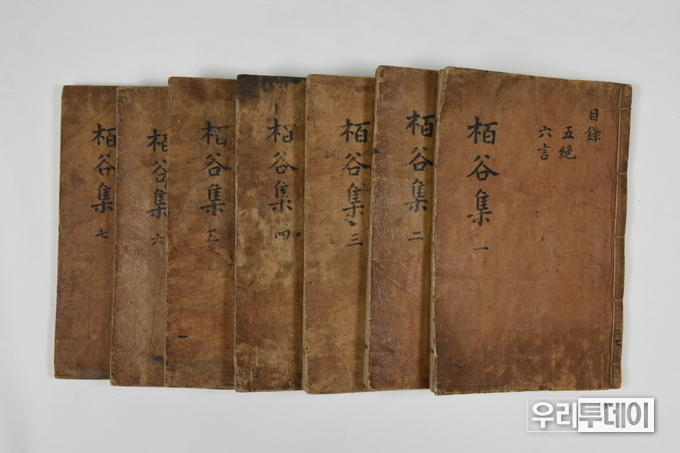 目錄
五絶
六言
栢谷集 一
栢谷集 二
栢谷集 三
栢谷集 四
栢谷集
栢谷集 六
栢谷集 七
우리투데이